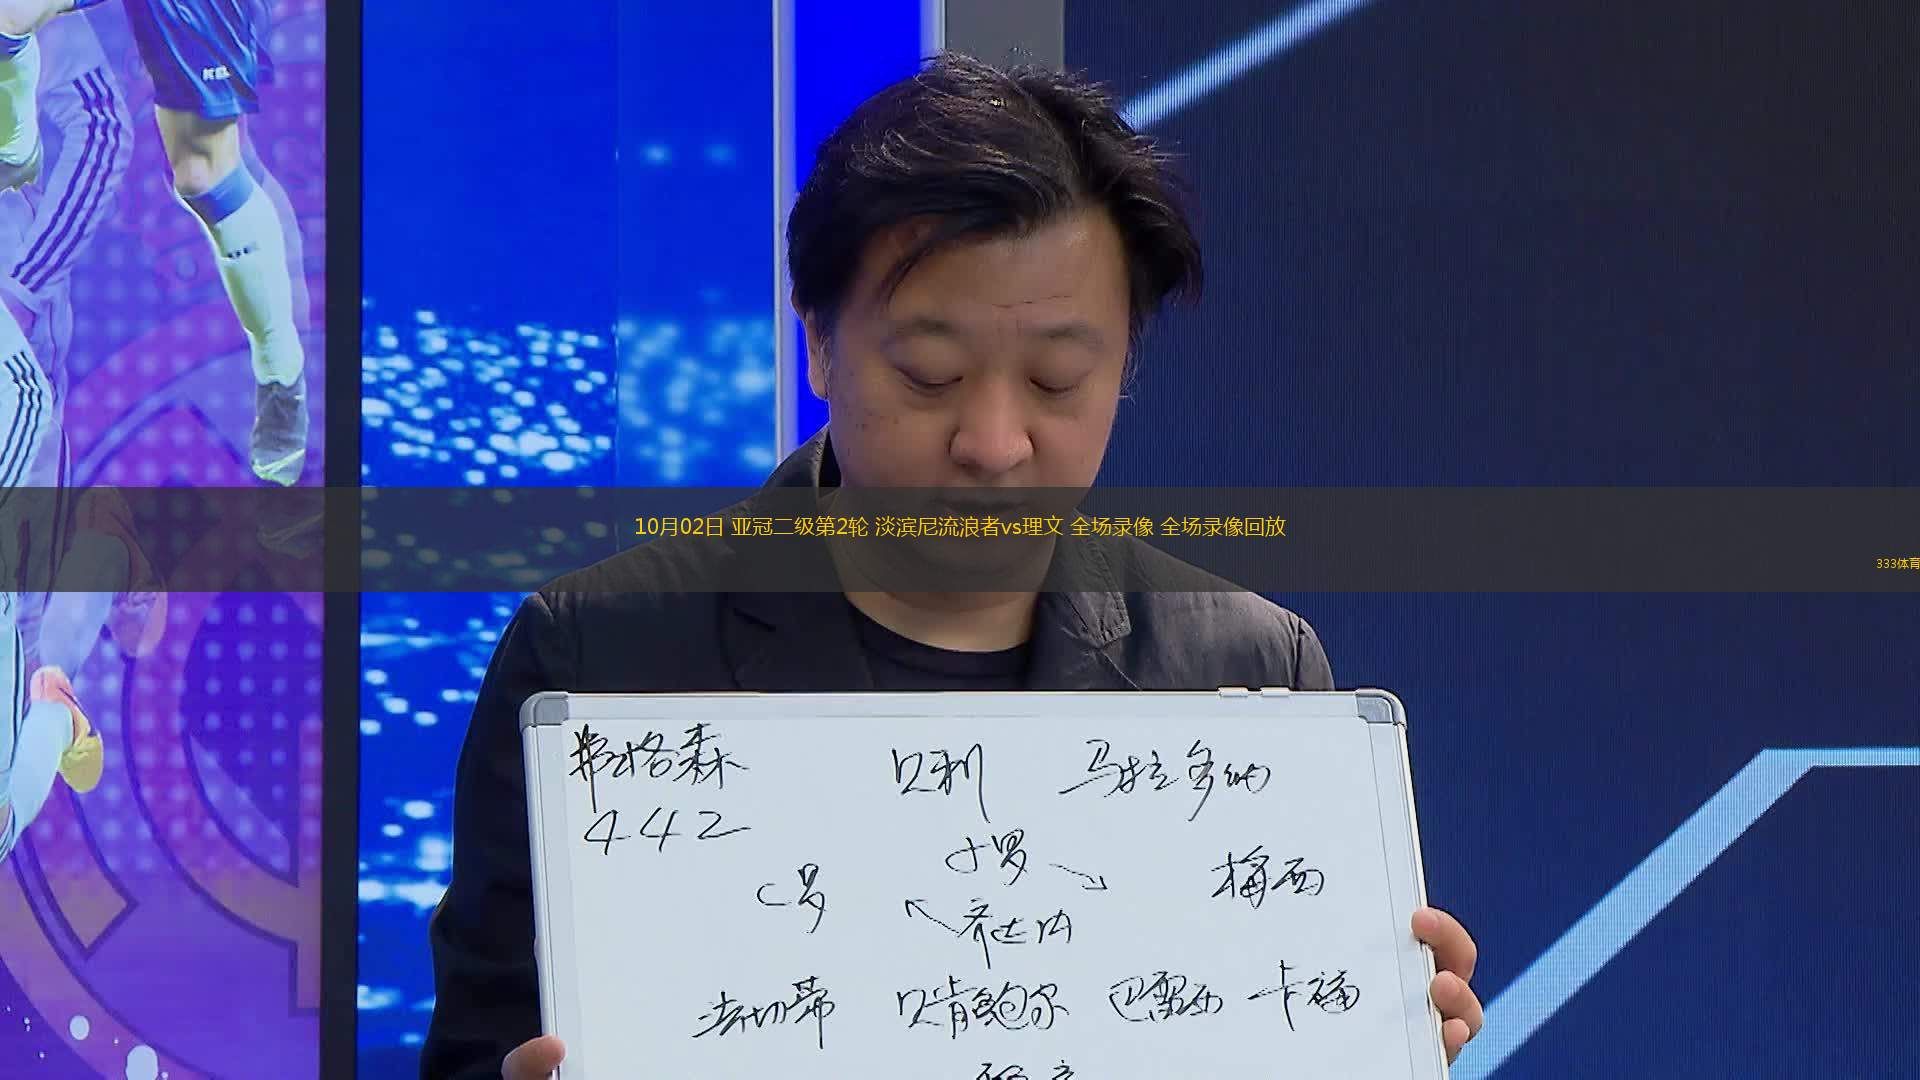 10月02日 亚冠二级第2轮 淡滨尼流浪者vs理文 全场录像 全场录像回放
333体育
弗格森 贝利 马拉多纳
442
小罗
C罗 梅西
齐达内
法切蒂 贝肯鲍尔 巴雷西 卡福